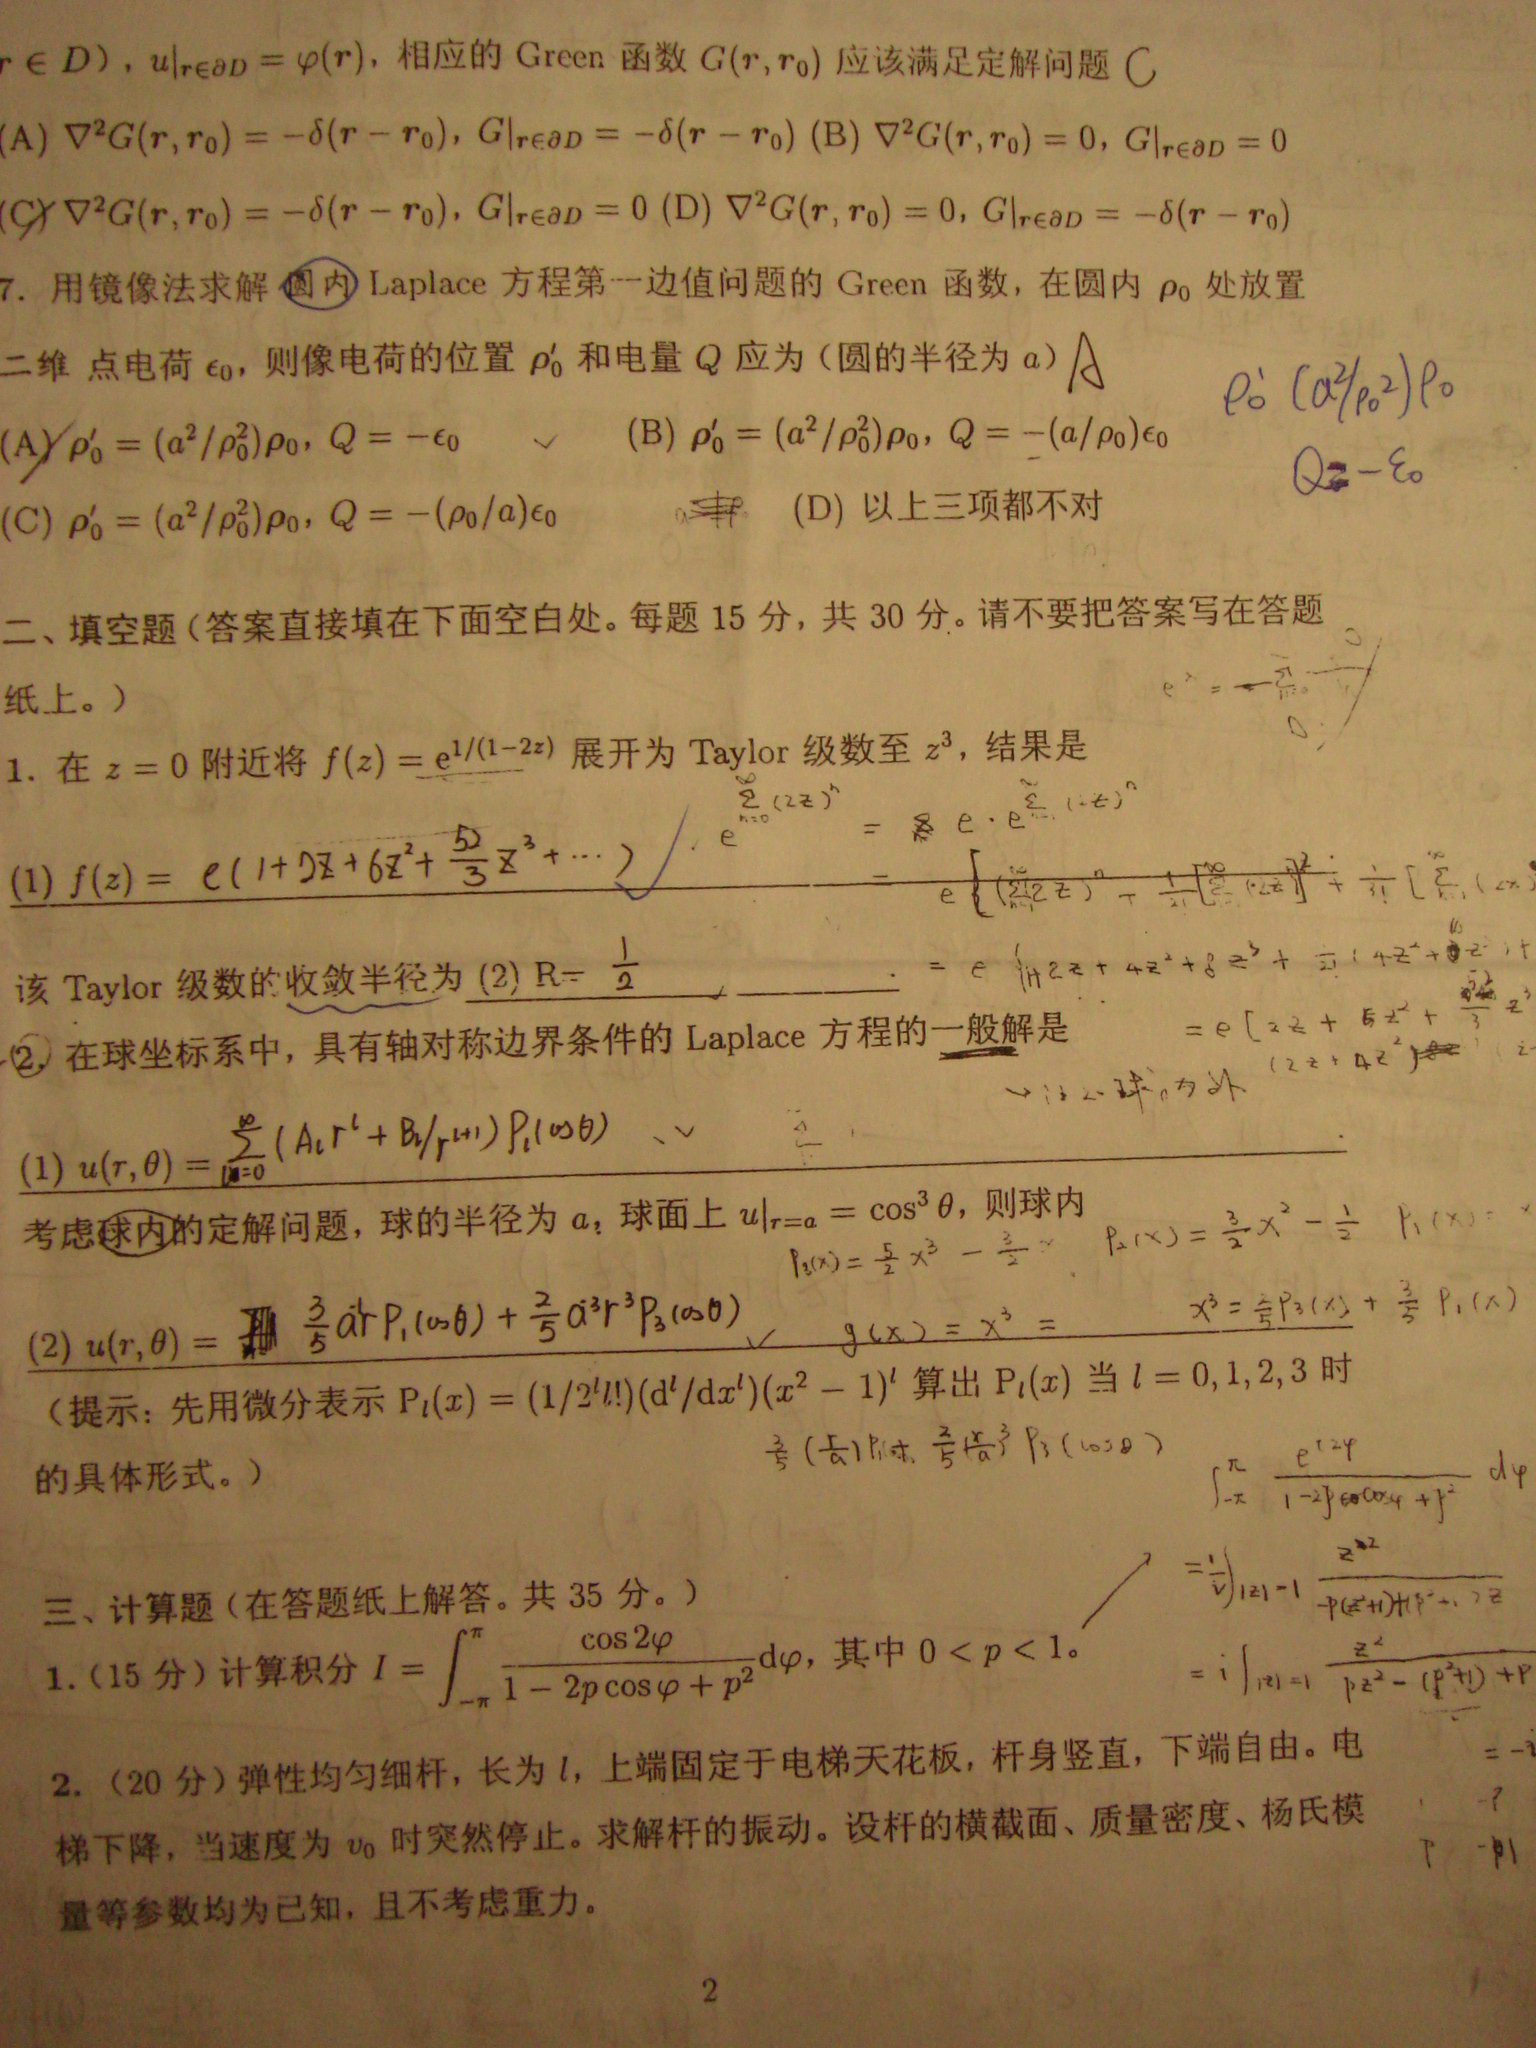 r ∈ D），u|r∈∂D = φ(r)，相应的 Green 函数 G(r, r₀) 应该满足定解问题 C
(A) ∇²G(r, r₀) = −δ(r − r₀)，G|r∈∂D = −δ(r − r₀) (B) ∇²G(r, r₀) = 0，G|r∈∂D = 0
(C) ∇²G(r, r₀) = −δ(r − r₀)，G|r∈∂D = 0 (D) ∇²G(r, r₀) = 0，G|r∈∂D = −δ(r − r₀)
7. 用镜像法求解 圆内 Laplace 方程第一边值问题的 Green 函数，在圆内 ρ₀ 处放置
二维 点电荷 ϵ₀，则像电荷的位置 ρ₀′ 和电量 Q 应为（圆的半径为 a）A
ρ₀′ (a²/ρ₀²)ρ₀
(A) ρ₀′ = (a²/ρ₀²)ρ₀，Q = −ϵ₀ (B) ρ₀′ = (a²/ρ₀²)ρ₀，Q = −(a/ρ₀)ϵ₀
Q = −ε₀
(C) ρ₀′ = (a²/ρ₀²)ρ₀，Q = −(ρ₀/a)ϵ₀ (D) 以上三项都不对
二、填空题（答案直接填在下面空白处。每题 15 分，共 30 分。请不要把答案写在答题
纸上。）
1. 在 z = 0 附近将 f(z) = e^{1/(1−2z)} 展开为 Taylor 级数至 z³，结果是
(1) f(z) = e(1+2z+6z²+52/3 z³+⋯)
该 Taylor 级数的收敛半径为 (2) R= 1/2
2. 在球坐标系中，具有轴对称边界条件的 Laplace 方程的一般解是
(1) u(r, θ) = ∑_{l=0}^∞ (A_l r^l + B_l/r^{l+1}) P_l(cosθ)
考虑球内的定解问题，球的半径为 a，球面上 u|r=a = cos³ θ，则球内
P₃(x) = 5/2 x³ − 3/2 x P₂(x) = 3/2 x² − 1/2 P₁(x) = x
(2) u(r, θ) = 3/5 a⁻¹r P₁(cosθ) + 2/5 a⁻³r³P₃(cosθ) g(x) = x³ = x³ = 2/5 P₃(x) + 3/5 P₁(x)
（提示：先用微分表示 P_l(x) = (1/2^l l!)(d^l/dx^l)(x² − 1)^l 算出 P_l(x) 当 l = 0, 1, 2, 3 时
的具体形式。）
∫_{−π}^{π} e^{i2φ}/(1−2p cosφ+p²) dφ
三、计算题（在答题纸上解答。共 35 分。）
1.（15 分）计算积分 I = ∫_{−π}^{π} cos 2φ/(1 − 2p cos φ + p²) dφ，其中 0 < p < 1。
2.（20 分）弹性均匀细杆，长为 l，上端固定于电梯天花板，杆身竖直，下端自由。电
梯下降，当速度为 v₀ 时突然停止。求解杆的振动。设杆的横截面、质量密度、杨氏模
量等参数均为已知，且不考虑重力。
2